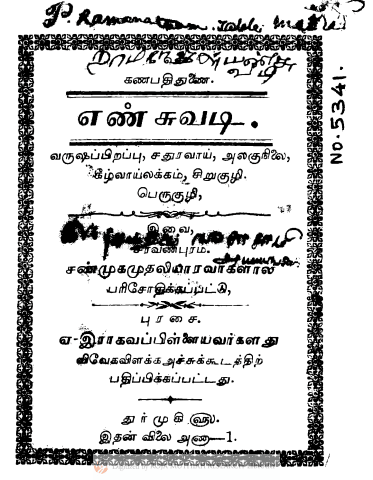 P Ramanatham
கணபதிதுணை.
எண்சுவடி.
வருஷப்பிறப்பு, சதுரவாய், அலகுநிலை,
கீழ்வாய்லக்கம், சிறுகுழி.
பெருகுழி,
இவை,
சரவணபுரம்.
சண்முகமுதலியாரவர்களால்
பரிசோதிக்கப்பட்டு,
புரசை.
ஏ-இராகவப்பிள்ளையவர்களது
விவேகவிளக்கஅச்சுக்கூடத்திற்
பதிப்பிக்கப்பட்டது.
துர்முகி௵
இதன் விலை அணா-1.
No. 5341.